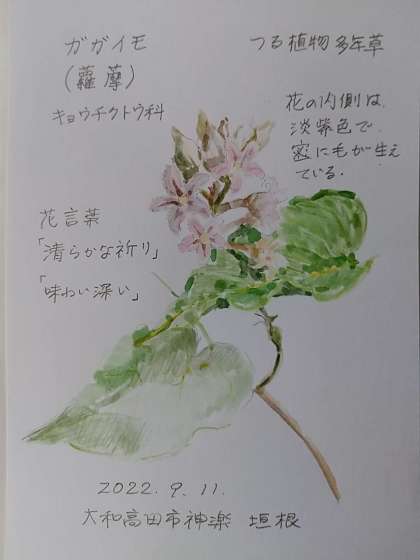 ガガイモ
(蘿藦)
キョウチクトウ科
つる植物 多年草
花の内側は、
淡紫色で、
密に毛が生え
ている.
花言葉
「清らかな祈り」
「味わい深い」
2022. 9. 11.
大和高田市神楽 垣根